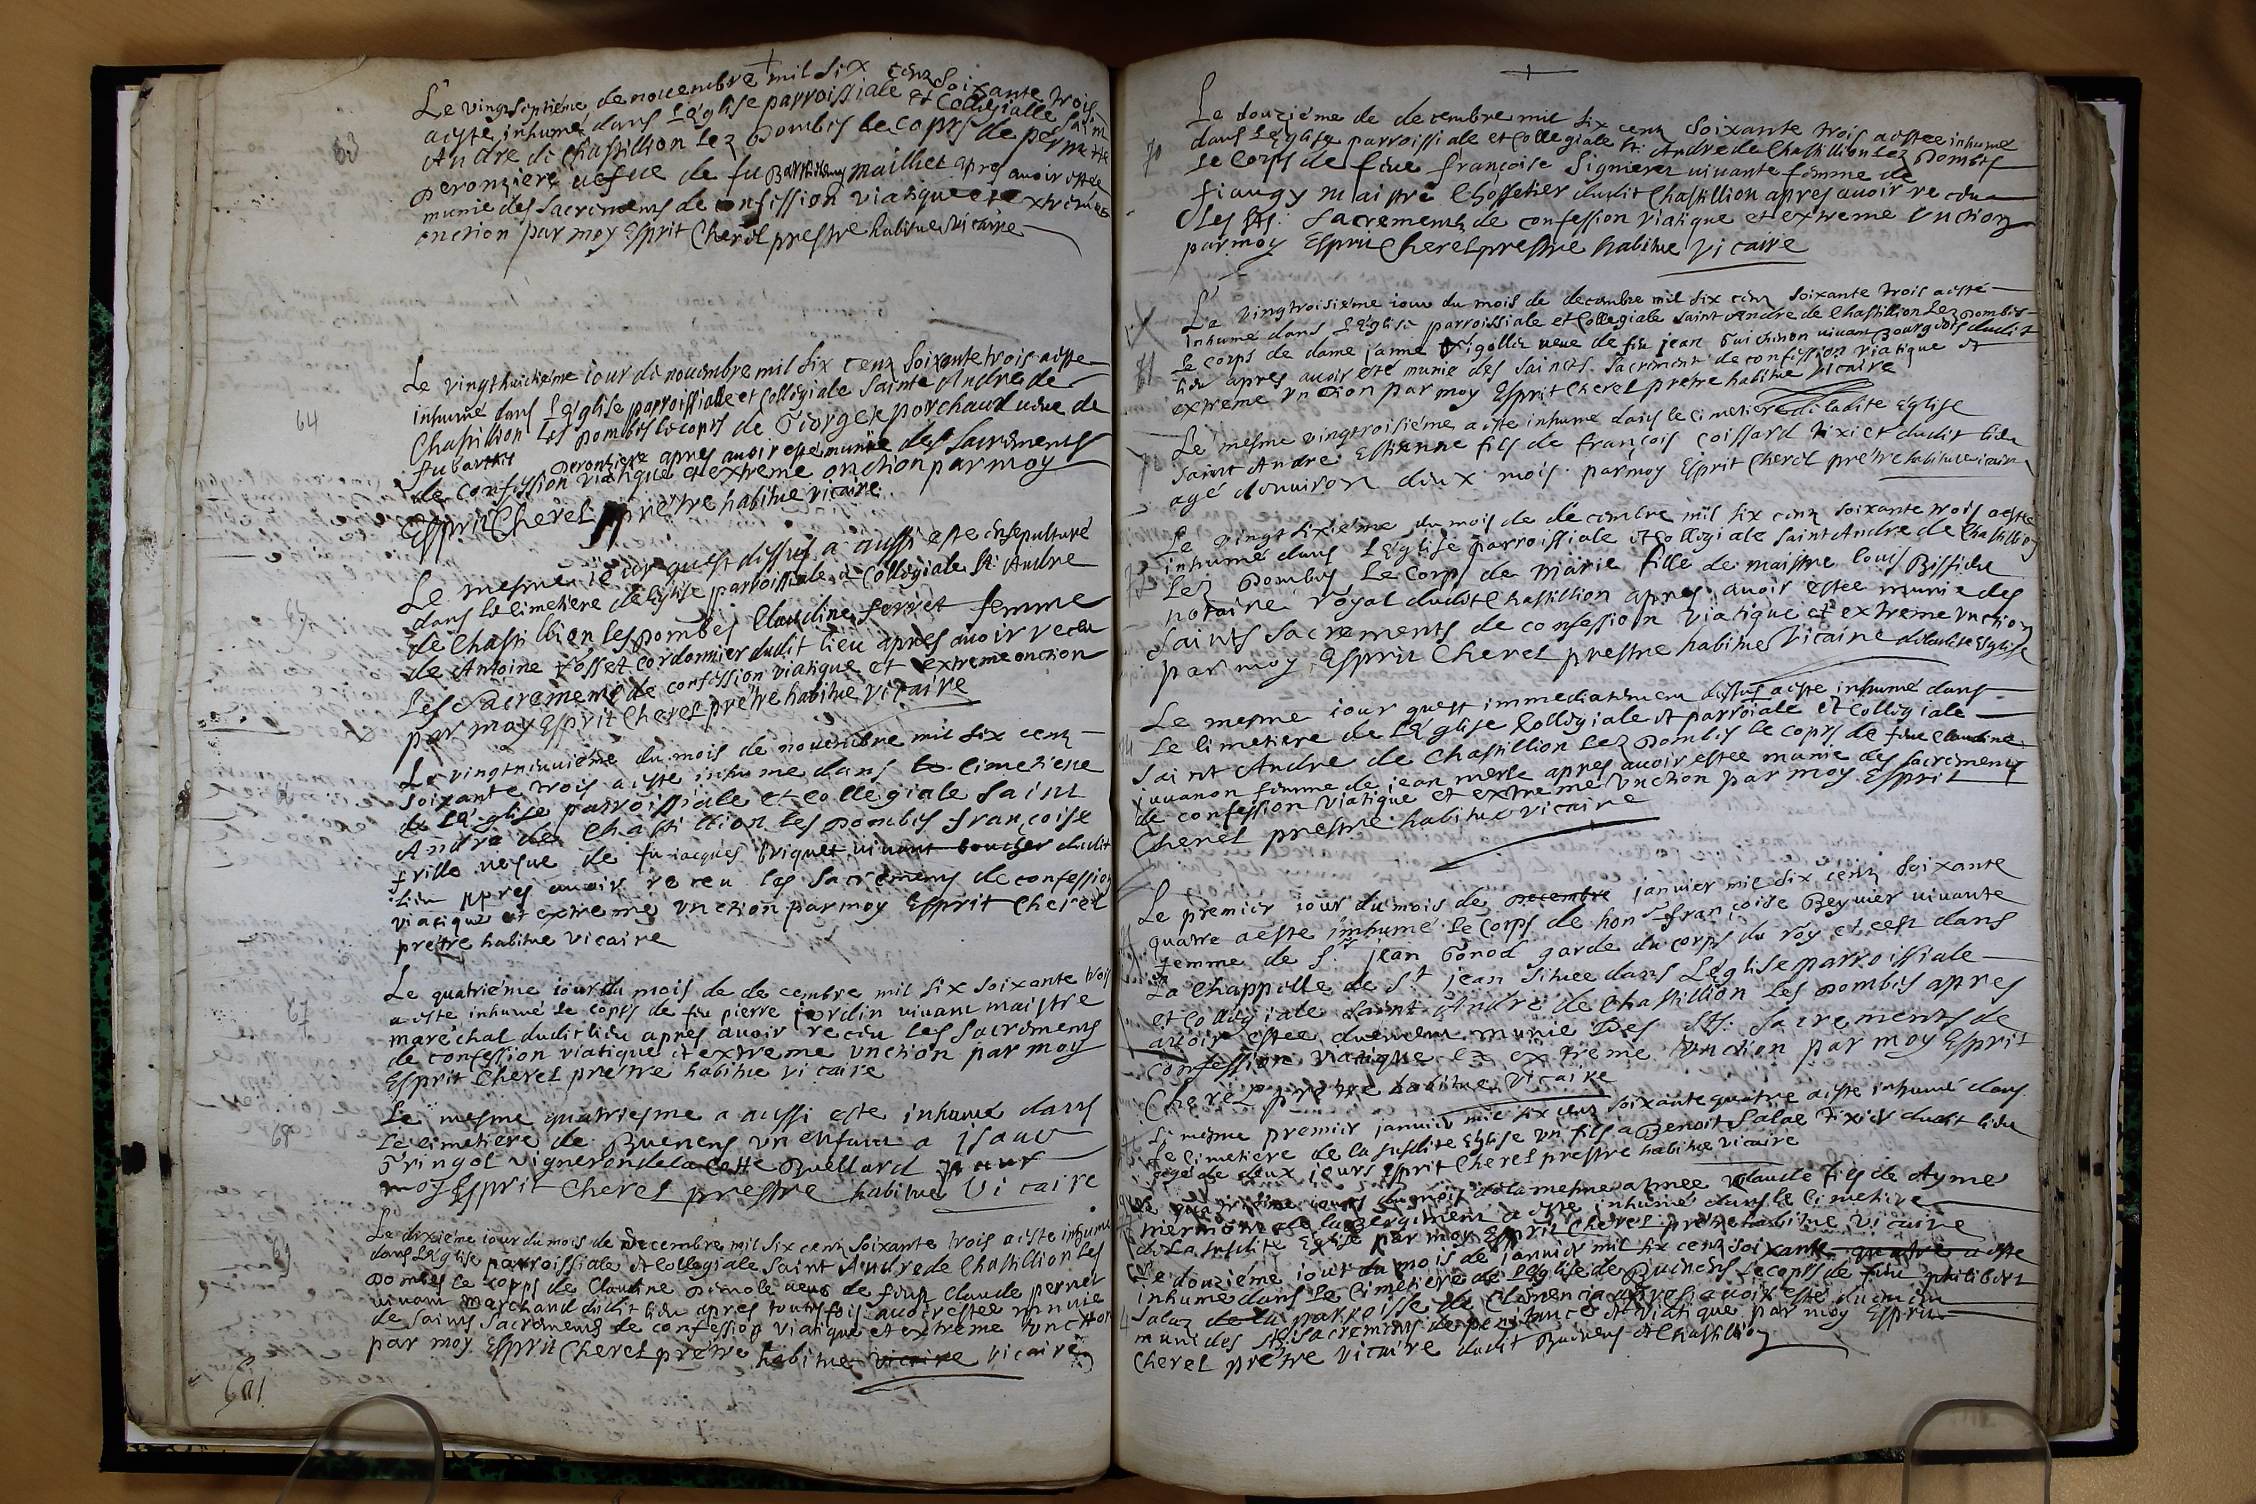 Le vingt septiéme de nouembre mil six cenz soixante trois
aeste inhumé dans L'Eglise parroissiale et Collegialle saint
63
Andre de Chastillion Lez Dombes le corps de pernette
peronziere uesue de fu Barthelemy maillet apres avoir estée
munie des Sacrements de confession viatique et extreme
onction par moy Esprit Cherel prestre habitue vicaire
Le vingthuictiéme iour de nouembre mil six cenz soixante trois aeste
inhumé dans L'Eglise parroissialle et Collegiale Sainte Andre de
64
Chastillion Les Dombes le corps de George porchaud ueue de
peronziere apres auoir esté munie des Sacrements
de confession viatique et extreme onction par moy
Esprit Cherel prétre habitue vicaire
Le mesme iour quest dessus a aussi este ensepulturé
dans le cimetiere de L'Eglise parroissiale et Collegiale St Andre
de Chastillion Les Dombes Claudine ferret femme
de Antoine fosset cordonnier dudit lieu apres auoir receu
Les Sacrements de confession viatique et extreme onction
par moy Esprit Cherel prétre habitue vicaire
Le vingtneuuiéme du mois de nouembre mil six cenz
soixante trois aeste inhume dans le cimetiere
de L'Eglise parroissiale et collegiale saint
Andre de Chastillion les Dombes françoise
frille uesue de fu iacques briquet viuant boucher dudit
lieu apres auoir receu les Sacrements de confession
viatique et extreme unction par moy Esprit Cherel
prétre habitue vicaire
Le quatriéme iour du mois de decembre mil six soixante trois
aeste inhumé le corps de feu pierre jordin viuant maistre
67
maréchal dudit lieu apres auoir receu les Sacrements
de confession viatique et extreme unction par moy
Esprit Cherel prétre habitue vicaire
Le mesme quatriesme a aussi este inhumé dans
68
Le cimetiere de Buenens un enfant a isaac
Gringol vigneron de la Buellard par
moy Esprit Cherel prestre habitue Vicaire
Le dixiéme iour du mois de Decembre mil six cenz soixante trois aeste inhumé
69
dans L'Eglise parroissiale et Collegiale saint Andre de Chastillion Les
Dombes le corps de Claudine Dimole ueue de feu Claude perrier
viuant marchand dudit lieu apres toutesfois auoir estee munie
de saints Sacrements de confession viatique et extreme unction
par moy Esprit Cherel prétre habitue vicaire vicaire
Le douziéme de decembre mil six cenz soixante trois aestee inhumé
70
dans L'Eglise parroissiale et Collegiale St Andre de Chastillion Lez Dombes
Le Corps de feue françoise Signerer viuante femme de
fiaugy maistre Chossetier dudit Chastillion apres auoir receu
Les Sts: Sacrements de confession viatique et extreme Unction
par moy Esprit Cherel prestre habitue Vicaire
Le vingtroisiéme iour du mois de decembre mil six cenz soixante trois aesté
inhumé dans L'Eglise parroissiale et Collegiale saint Andre de Chastillion Lez Dombes
71
le corps de dame janne Vigollet ueue de feu jean Guichenon viuant Bourgeois dudit
lieu apres auoir esté munie des saincts Sacrement de confession viatique et
extreme unction par moy Esprit Cherel prétre habitue vicaire
Le mesme vingtroisiéme aeste inhumé dans le cimetiere de ladite Eglise
saint Andre Estienne fils de françois coissard tixiet dudit lieu
agé denuiron deux mois par moy Esprit Cherel prétre habitue vicaire
Le vingt sixiéme du mois de decembre mil six cenz soixante trois aeste
inhumé dans L'Eglise parroissiale et collegiale saint Andre de Chastillion
73
Lez Dombes Le Corps de Marie fille de maistre louis Bissieu
notaire royal dudit Chastillion apres auoir estee munie des
saints Sacrements de confession viatique et extreme unction
par moy Esprit Cherel prestre habitue Vicaire de ladite Eglise
Le mesme iour quest immediatement dessus aeste inhumé dans
Le Cimetiere de L'Eglise Collegiale et parroiale et Collegiale
saint Andre de Chastillion Lez Dombes le corps de feue claudine
juuanon femme de jean merle apres auoir estee munie des sacrements
de confession viatique et extreme unction par moy Esprit
Cherel prestre habitue vicaire
Le premier iour du mois de Decembre janvier mil six cenz soixante
quatre aeste inhumé Le Corps de hon. françoise Beyuier viuante
femme de Sr jean Gonod garde du corps du roy et cest dans
La Chappelle de St jean situee dans L'Eglise parroissiale
et Collegiale saint Andre de Chastillion les Dombes apres
auoir estee duement munie Des Sts: Sacrements de
confession viatique et extreme Unction par moy Esprit
Cherel prétre habitue Vicaire
Le mesme premier januier mil six cenz soixante quatre aeste inhumé dans
le cimetiere de la susdite Eglise un fils a Benoit Salae Tixier dudit lieu
agé de deux iours Esprit Cherel prestre habitue vicaire
Le iour du mois de la mesme annee Claude fils de Ayme
mermon de la aeste inhumé dans le Cimetiere
de La susdite Eglise par moy Esprit Cherel prétre habitue Vicaire
Le douziéme iour du mois de ianuier mil six cenz soixante quatre aeste
inhume dans Le Cimetiere de L'Eglise de Buenens le corps de feu philibert
Salaz de la parroisse de Clemencia apres auoir esté duemen
muni des Sts Sacrements de penitence et viatique par moy Esprit
Cherel prétre Vicaire dudit Buenens et Chastillion